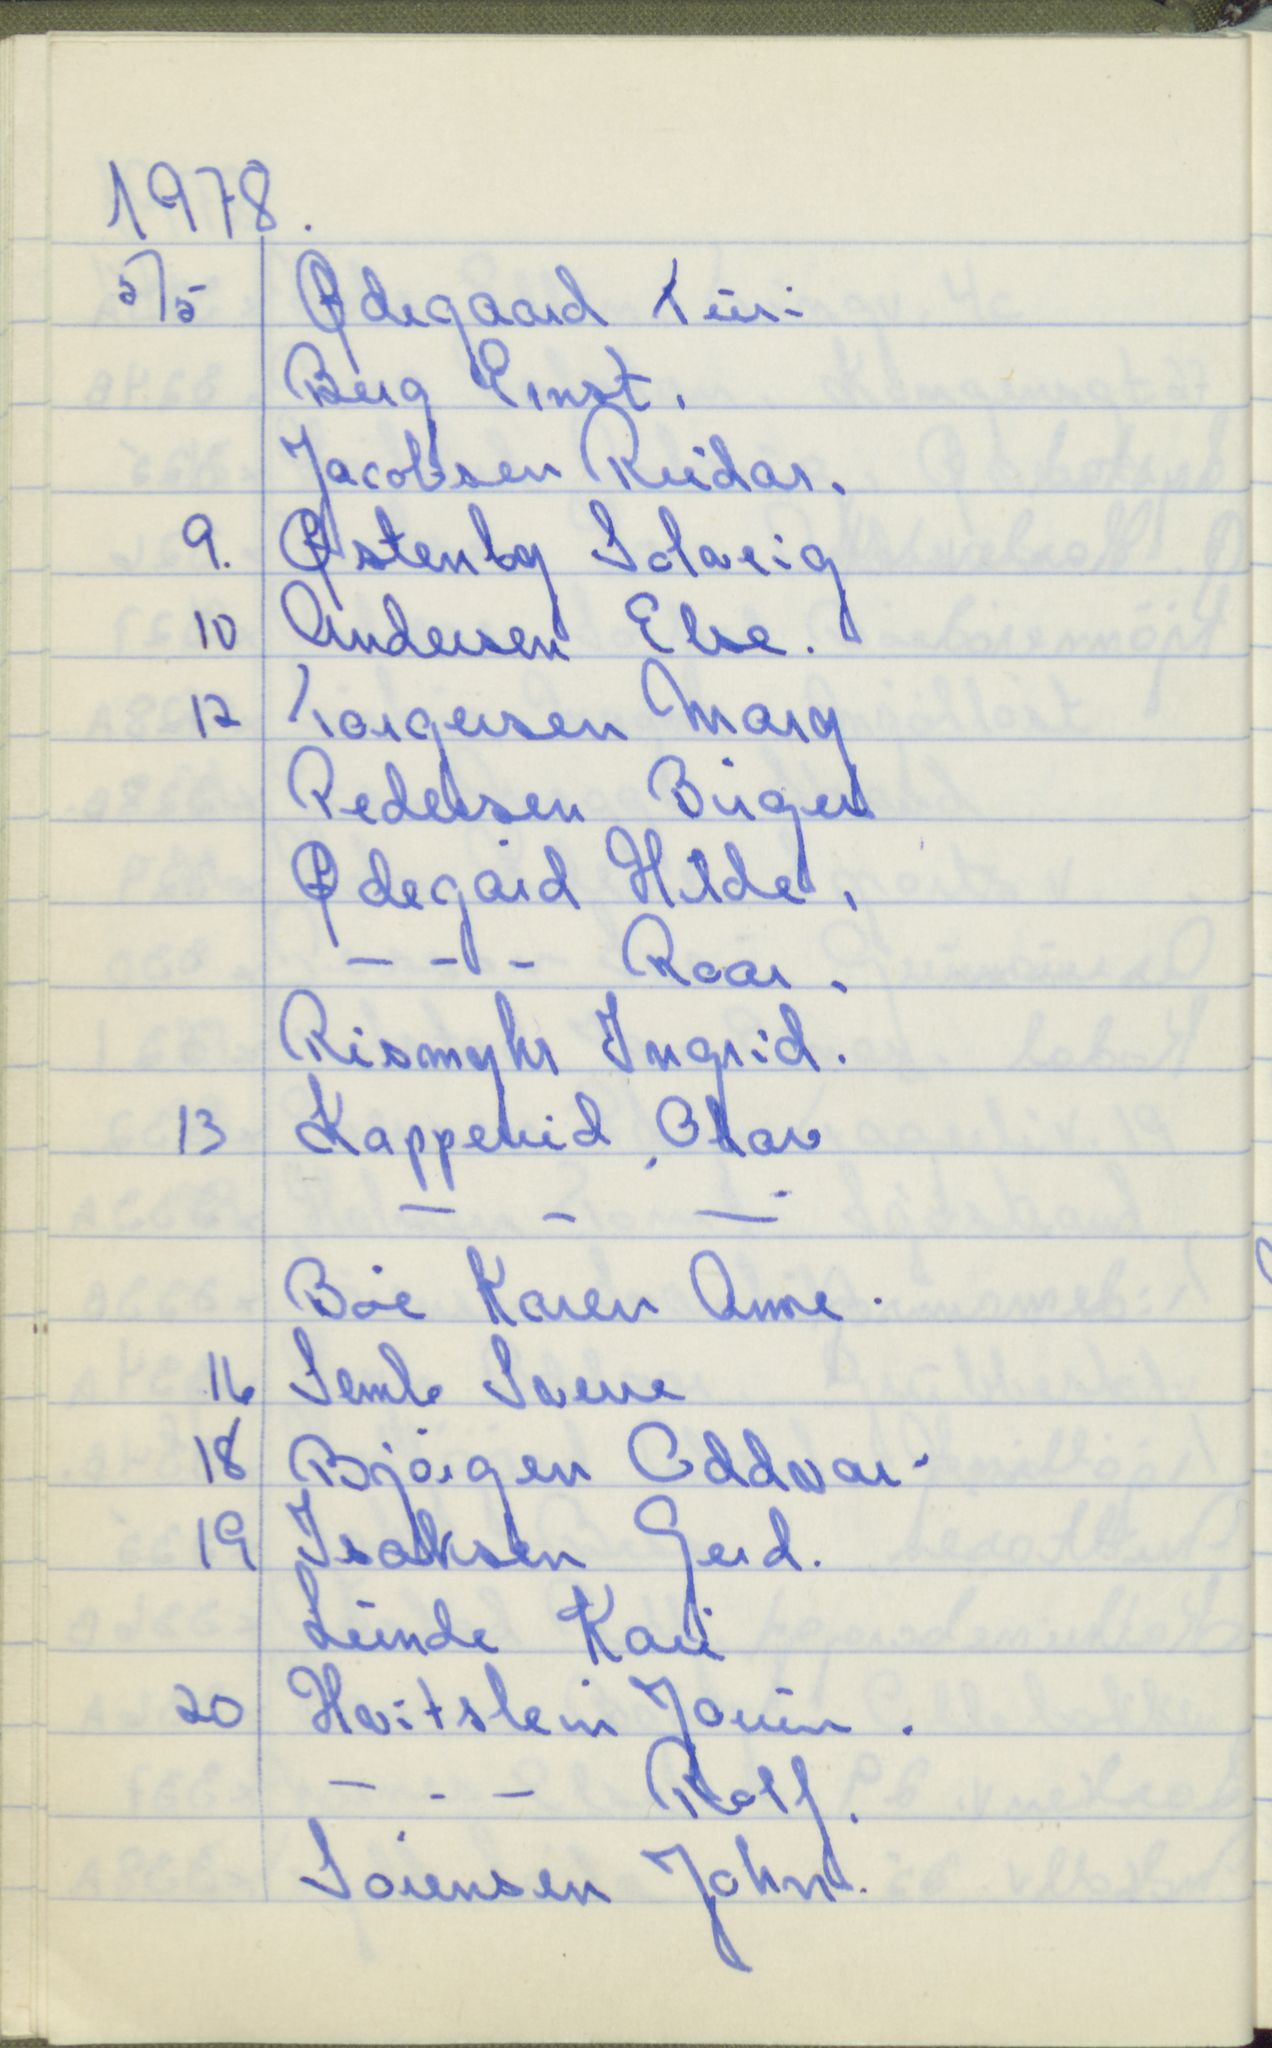 1978.
5/5 Ødegaard Turi
Berg Ernst.
Jacobsen Reidar.
9. Østenby Solveig
10 Andersen Else.
12 Torgersen Mary
Pedersen Birger
Ødegård Hilde.
- - - Roar.
Rismyhr Ingrid.
13 Kapperud, Olav
- - -
Böe Karen Anne.
16 Semb Sverre
18 Björgen Oddvar.
19 Isaksen Gerd.
Lunde Kari
20 Hvitstein Jorun.
- - - Rolf.
Sörensen John.